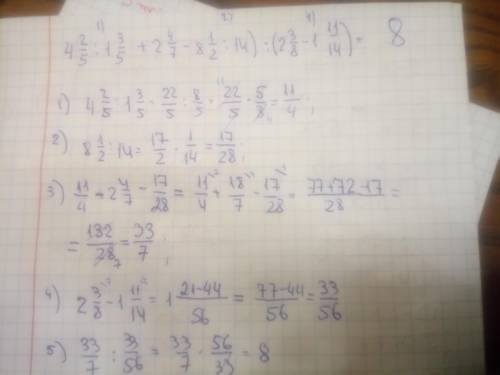 1) 2) 4)
4 2/5 : 1 3/5 + 2 4/7 - 8 1/2 : 14) : (2 3/8 - 1 11/14) = 8
1) 4 2/5 : 1 3/5 = 22/5 : 8/5 = 22/5 · 5/8 = 11/4 ;
2) 8 1/2 : 14 = 17/2 · 1/14 = 17/28 ;
3) 11/4 + 2 4/7 - 17/28 = 11/4 + 18/7 - 17/28 = 77+72-17/28 =
= 132/28 = 33/7 ;
4) 2 3/8 - 1 11/14 = 1 21-44/56 = 77-44/56 = 33/56
5) 33/7 : 33/56 = 33/7 · 56/33 = 8